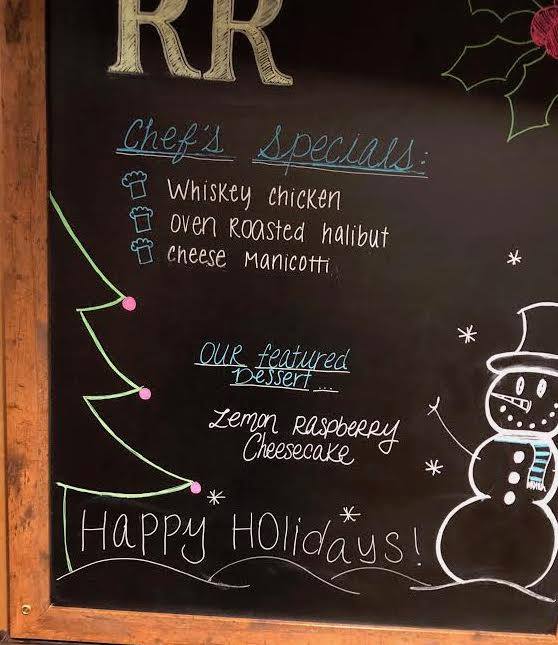 RR
Chef's Specials:
Whiskey chicken
Oven Roasted halibut
Cheese Manicotti
Our featured
Dessert...
Lemon Raspberry
Cheesecake
Happy Holidays!